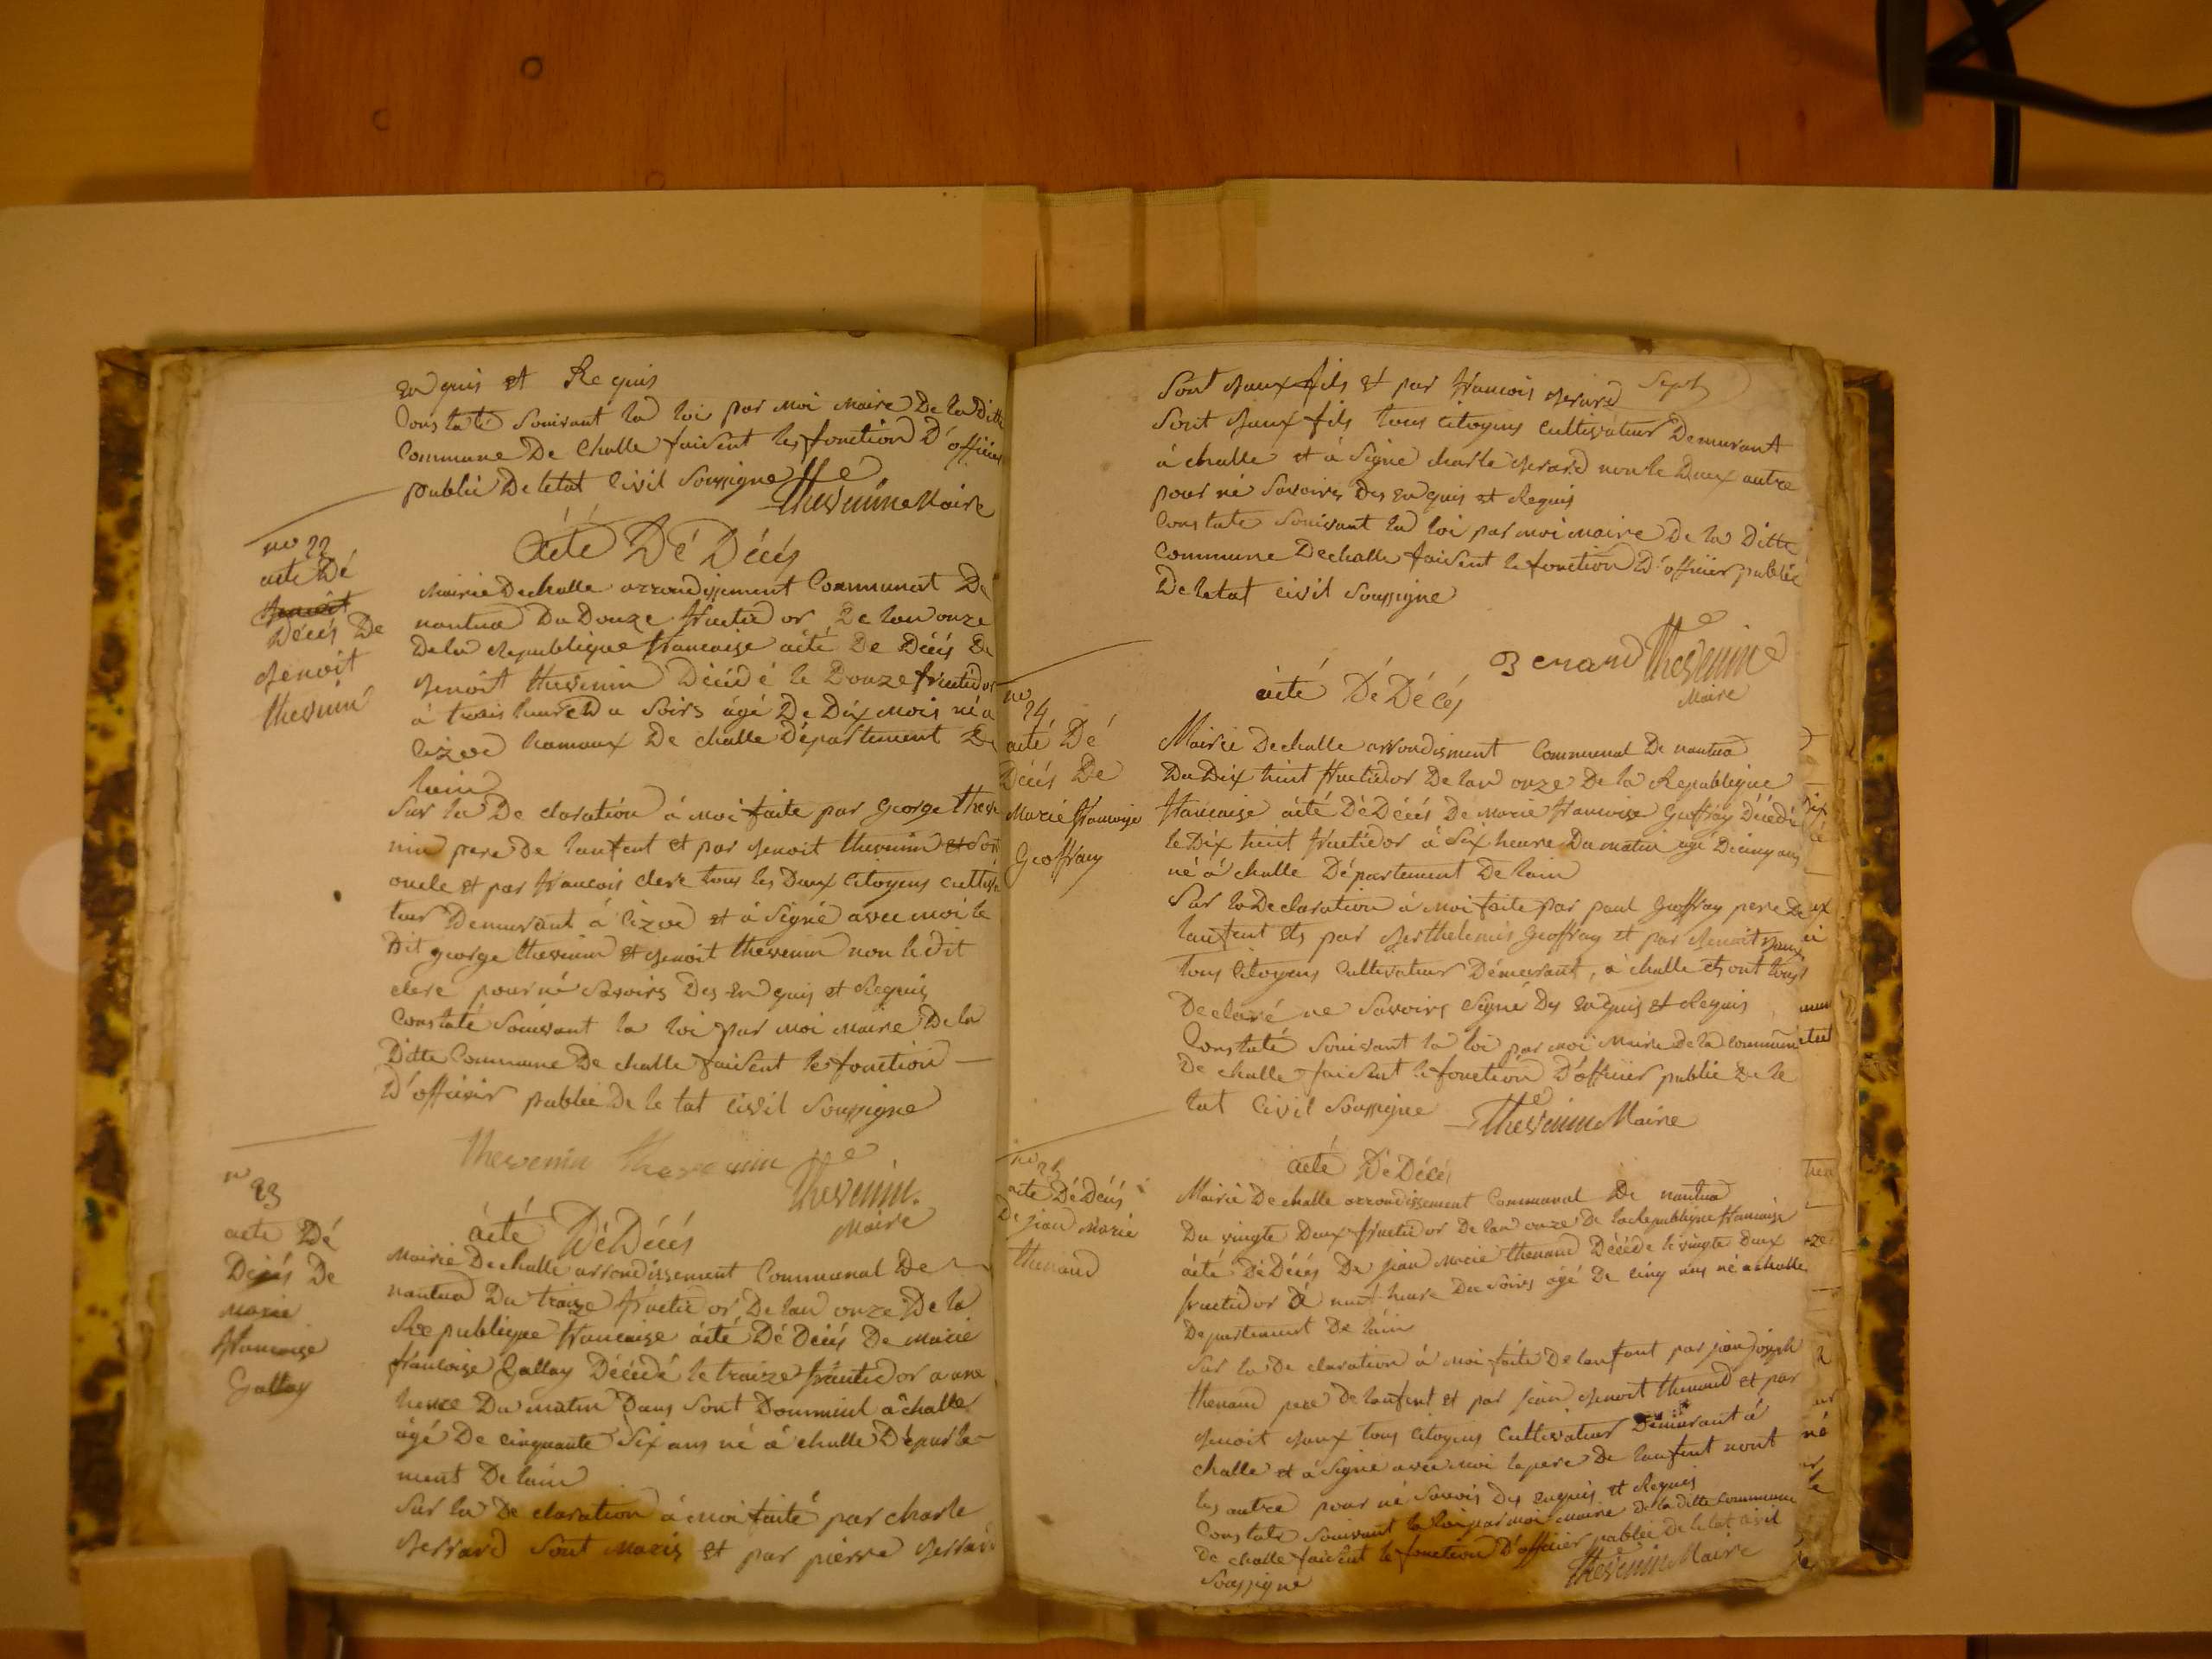 en quis et Requis
Constaté Souivant la loi par moi maire De la Ditte
Commune De Challe faisent les fonction D'officier
publié De letat Civil Soussigne
Thevenin Maire
no 22
acte Dé
Décés De
Benoit
thevenin
acté Dé Décés
Mairie De challe arrondissement Communal De
nantua Du Douze fructidor De lan onze
De la Republique francaise acté De Décés De
Benoit thevenin Décédé le Douze fructidor
à trois heure Du Soirs âgé De Dix mois né a
lizoe hamaux De challe Département De
lain
Sur la De claration à moi faite par George theve
nin pere De lanfent et par Benoit thevenin et Son
oncle et par francois clerc tous les Deux Citoyens cultiva
teur Demurant à lizoe et à Signé avec moi le
Dit george thevenin et Benoit thevenin non le dit
clerc pour né Savoirs Des en quis et Requis
Constaté Souivant la loi par moi maire De la
Ditte Commune De challe faisent les fonction
D'officier publié De le tat Civil Soussigne
thevenin thevenin
Thevenin
Maire
no 23
acte Dé
Décés De
Marie
francoise
Gallay
acté Dé Décés
Mairie De challe arrondissement Communal De
nantua Du traize fructidor De lan onze De la
Republique francaise acté Dé Décés De marie
francoise Gallay Décédé le traize fructidor a une
heure Du matin Dans Sont Dommicil à challe
âgé De cinquante Six ans né à challe Départe-
ment De lain
Sur la De claration à moi faité par charle
Berrard Sont Maris et par pierre Berrard
Sept
Sont Baux fils et par francois Berard
Sont Baux fils tous citoyens cultivateur Demurant
à challe et à Signe charle Berard non le Deux autre
pour né Savoirs Des en quis et Requis
Constate Souivant la loi par moi maire De la Ditte
Commune De challe faisent le fonction D'officier publié
De letat civil Soussigne
Berard Thevenin
Maire
no 24
acté Dé
Décés De
Marie francoise
Geoffray
acté Dé Décés
Mairie De challe arrondisment Communal De nantua
Du Dix huit fructidor De lan onze De la Republique
francaise acté Dé Décés De marie francoise Geoffray Décédé
le Dix huit fructidor à Six heure Du matin âgé De cinq ans
né à challe Département De lain
Sur la De claration à moi faite par paul Geoffray pere De
lanfent et par Berthelemis Geoffray et par Benoit Baux
tous Citoyens cultivateur Démurant à challe et ont tous
Declaré ne Savoirs Signé Des en quis et Requis
Constaté Souivant la loi par moi Maire De la commune
De challe faisent le fonction D'officier publié De le
tat Civil Soussigne
Thevenin Maire
no 25
acte Dé Décés
De jean Marie
thenand
acté Dé Décés
Mairie De challe arrondissement Communal De nantua
Du vingte Deux fructidor De lan onze De la Republique francaise
acté Dé Décés De jean Marie thenand Décédé le vingte Deux
fructidor à neuf heure Du Soirs âgé De cinq ans né a challe
Departement De lain
Sur la De claration à moi faite De lanfant par jean joseph
thenand pere De lanfent et par jean Benoit thenand et par
Benoit Baux tous Citoyens Cultivateur Démurant à
challe et à Signe avec moi le pere De lanfent nont
les autre pour né Savoir Des enquis et Requis
Constate Souivant la loi par moi maire De la ditte commune
De challe faisent le fonction D'officier publié de le tat civil
Soussigne
Thevenin Maire